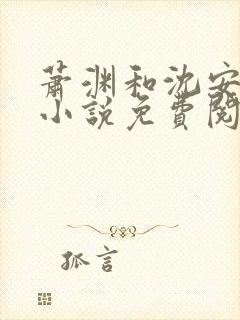 萧渊和沈安
小说免費閱
孤言